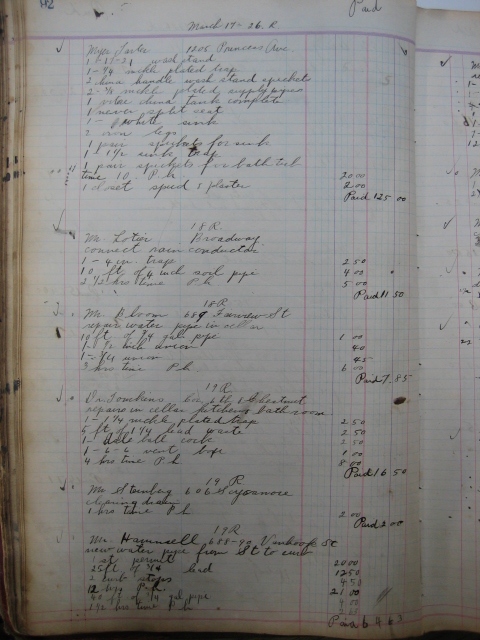 112
Paid
March 17 - 26. R
Myer Laster 1205 Princess Ave
1 - 17-21 wash stand
1 - 1/4 nickle plated trap
2 china handle wash stand spickets
2 - 3/8 nickle plated supply pipes
1 vitre china tank complete
1 never split seat
1 - white sink
2 iron legs
1 pair spickets for sink
1 - 1 1/2 sink trap
1 pair spickets for bath tub
time 10. P h 20 00
1 closet spud & plaster 2 00
Paid 125 00
18 R.
Mr. Lotier Broadway.
connect rain conductor
1 - 4 in. trap 2 50
10 ft of 4 inch soil pipe 4 00
2 1/2 hrs time P h 5 00
Paid 11 50
18 R
Mr. Bloom 689 Fairview St
repair water pipe in cellar
10 ft of 3/4 gal pipe 1 00
union 40
1 - 3/4 union 45
3 hrs time P h 6 00
Paid 7. 85
19 R
Dr. Tomkins Cor 6th & Chestnut
repairs in cellar kitchen & bathroom
1 - 1 1/4 nickle plated trap 2 50
5 ft of 1 1/4 lead waste 2 50
1 - ball cock 2 50
1 - 6 - 6 vent box 1 00
4 hrs time P h 8 00
Paid 16 50
19 R.
Mr Steinberg 606 Sycamore
clearing drain
1 hrs time P h 2 00
Paid 2 00
19 R
Mr. 688-90 Vanhook St
new water pipe from St to curb
1 st permit 20 00
25 ft of 3/4 lead 12 50
2 curb stops 4 50
12 hrs P h 21 00
40 ft of 3/4 gal pipe 4 00
1 1/2 hrs time P h
Paid